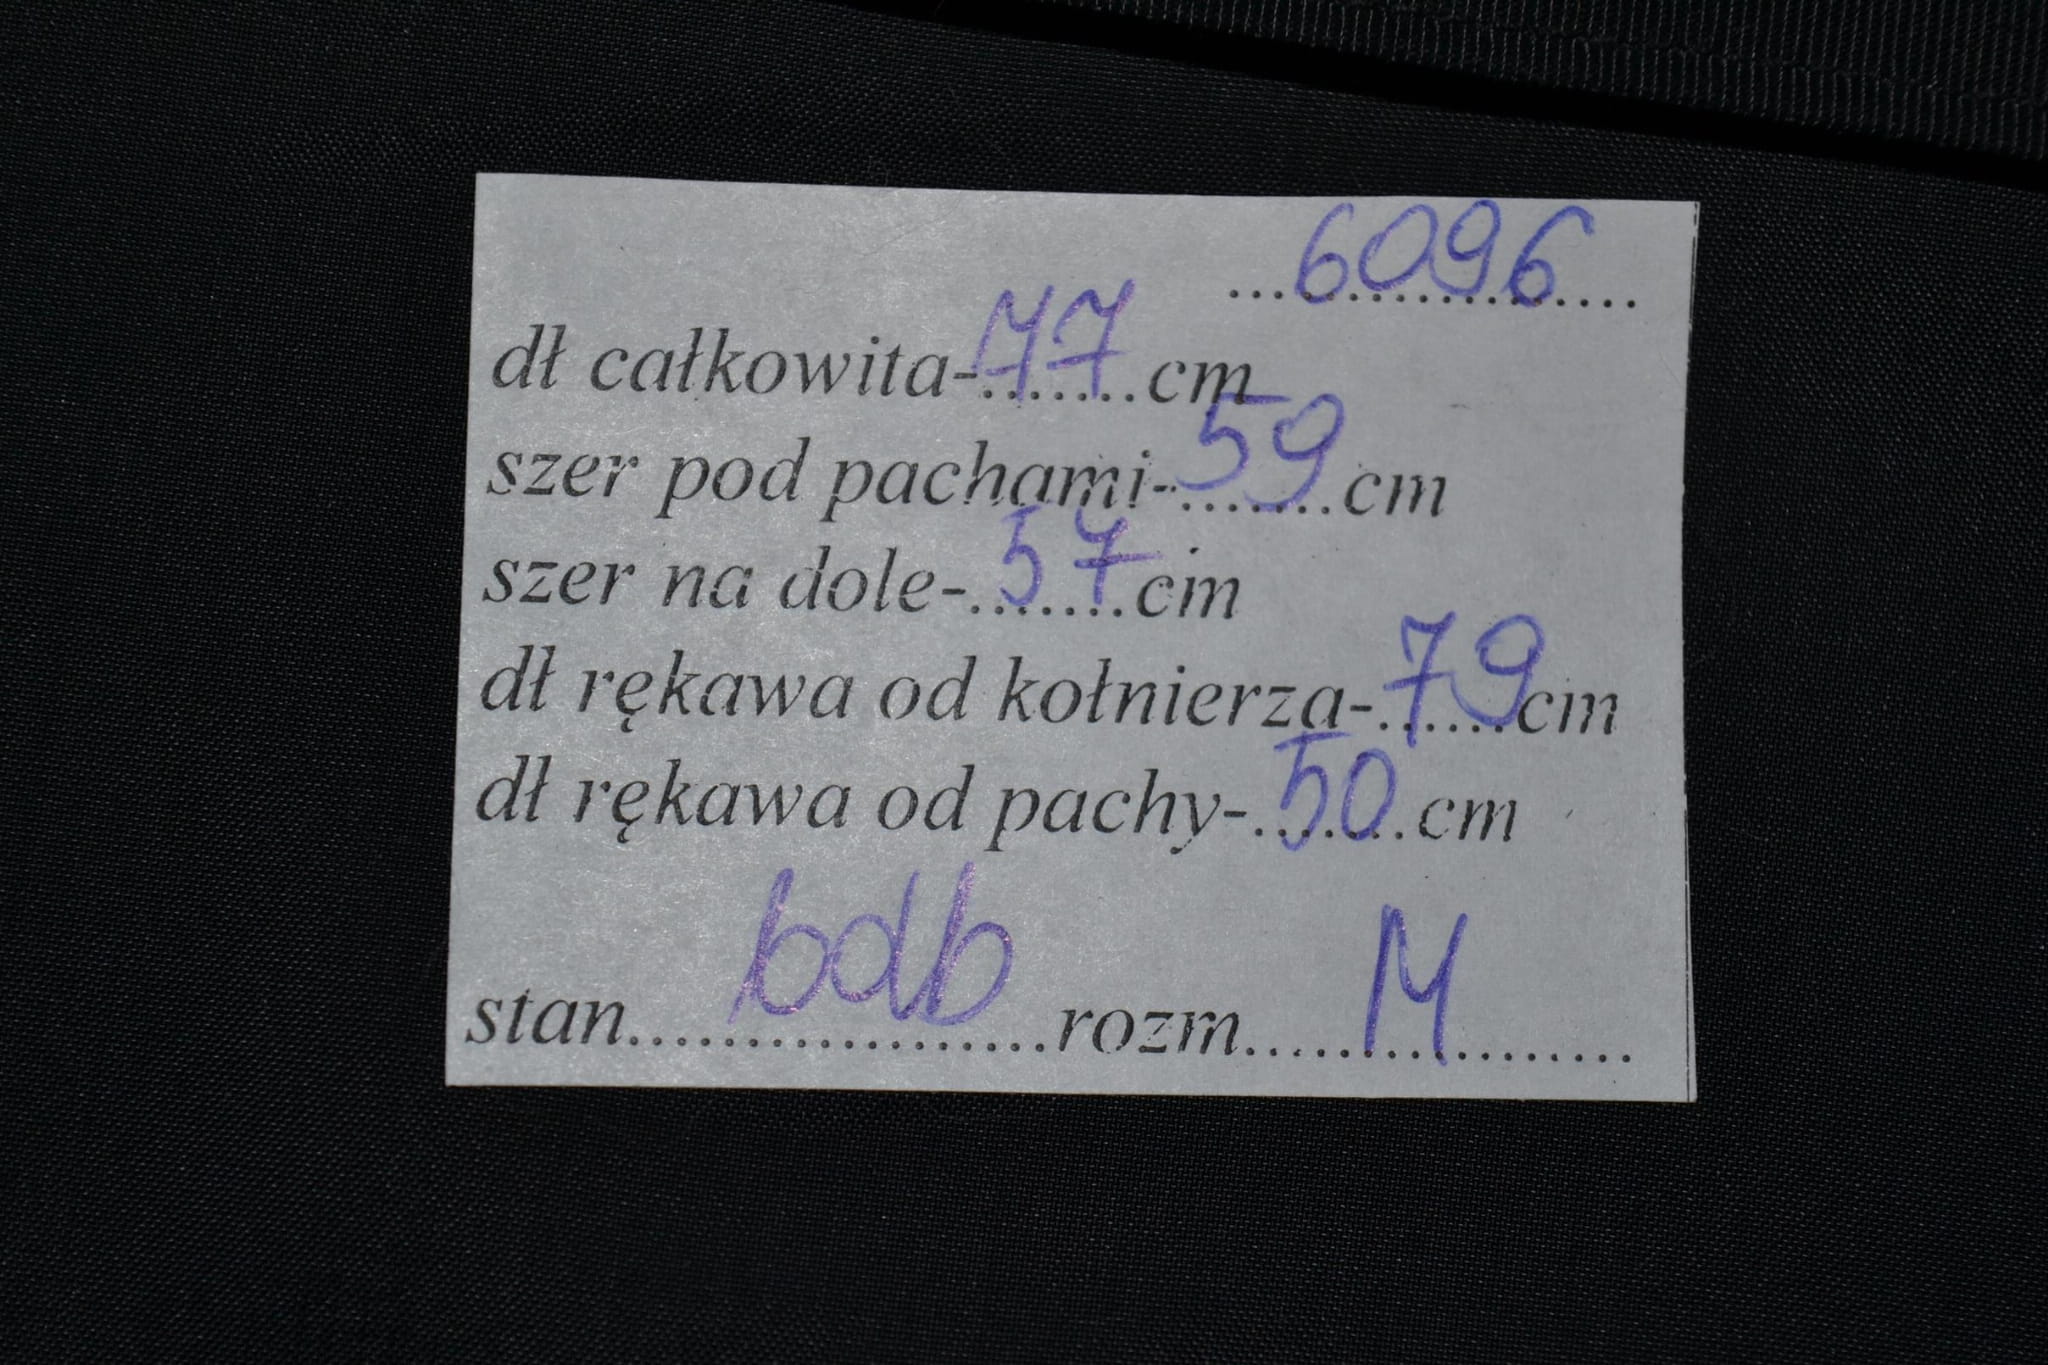 ...6096...
dł całkowita-77cm
szer pod pachami-59cm
szer na dole-57cm
dł rękawa od kołnierza-79cm
dł rękawa od pachy-50cm
stan...bdb...rozm...M...